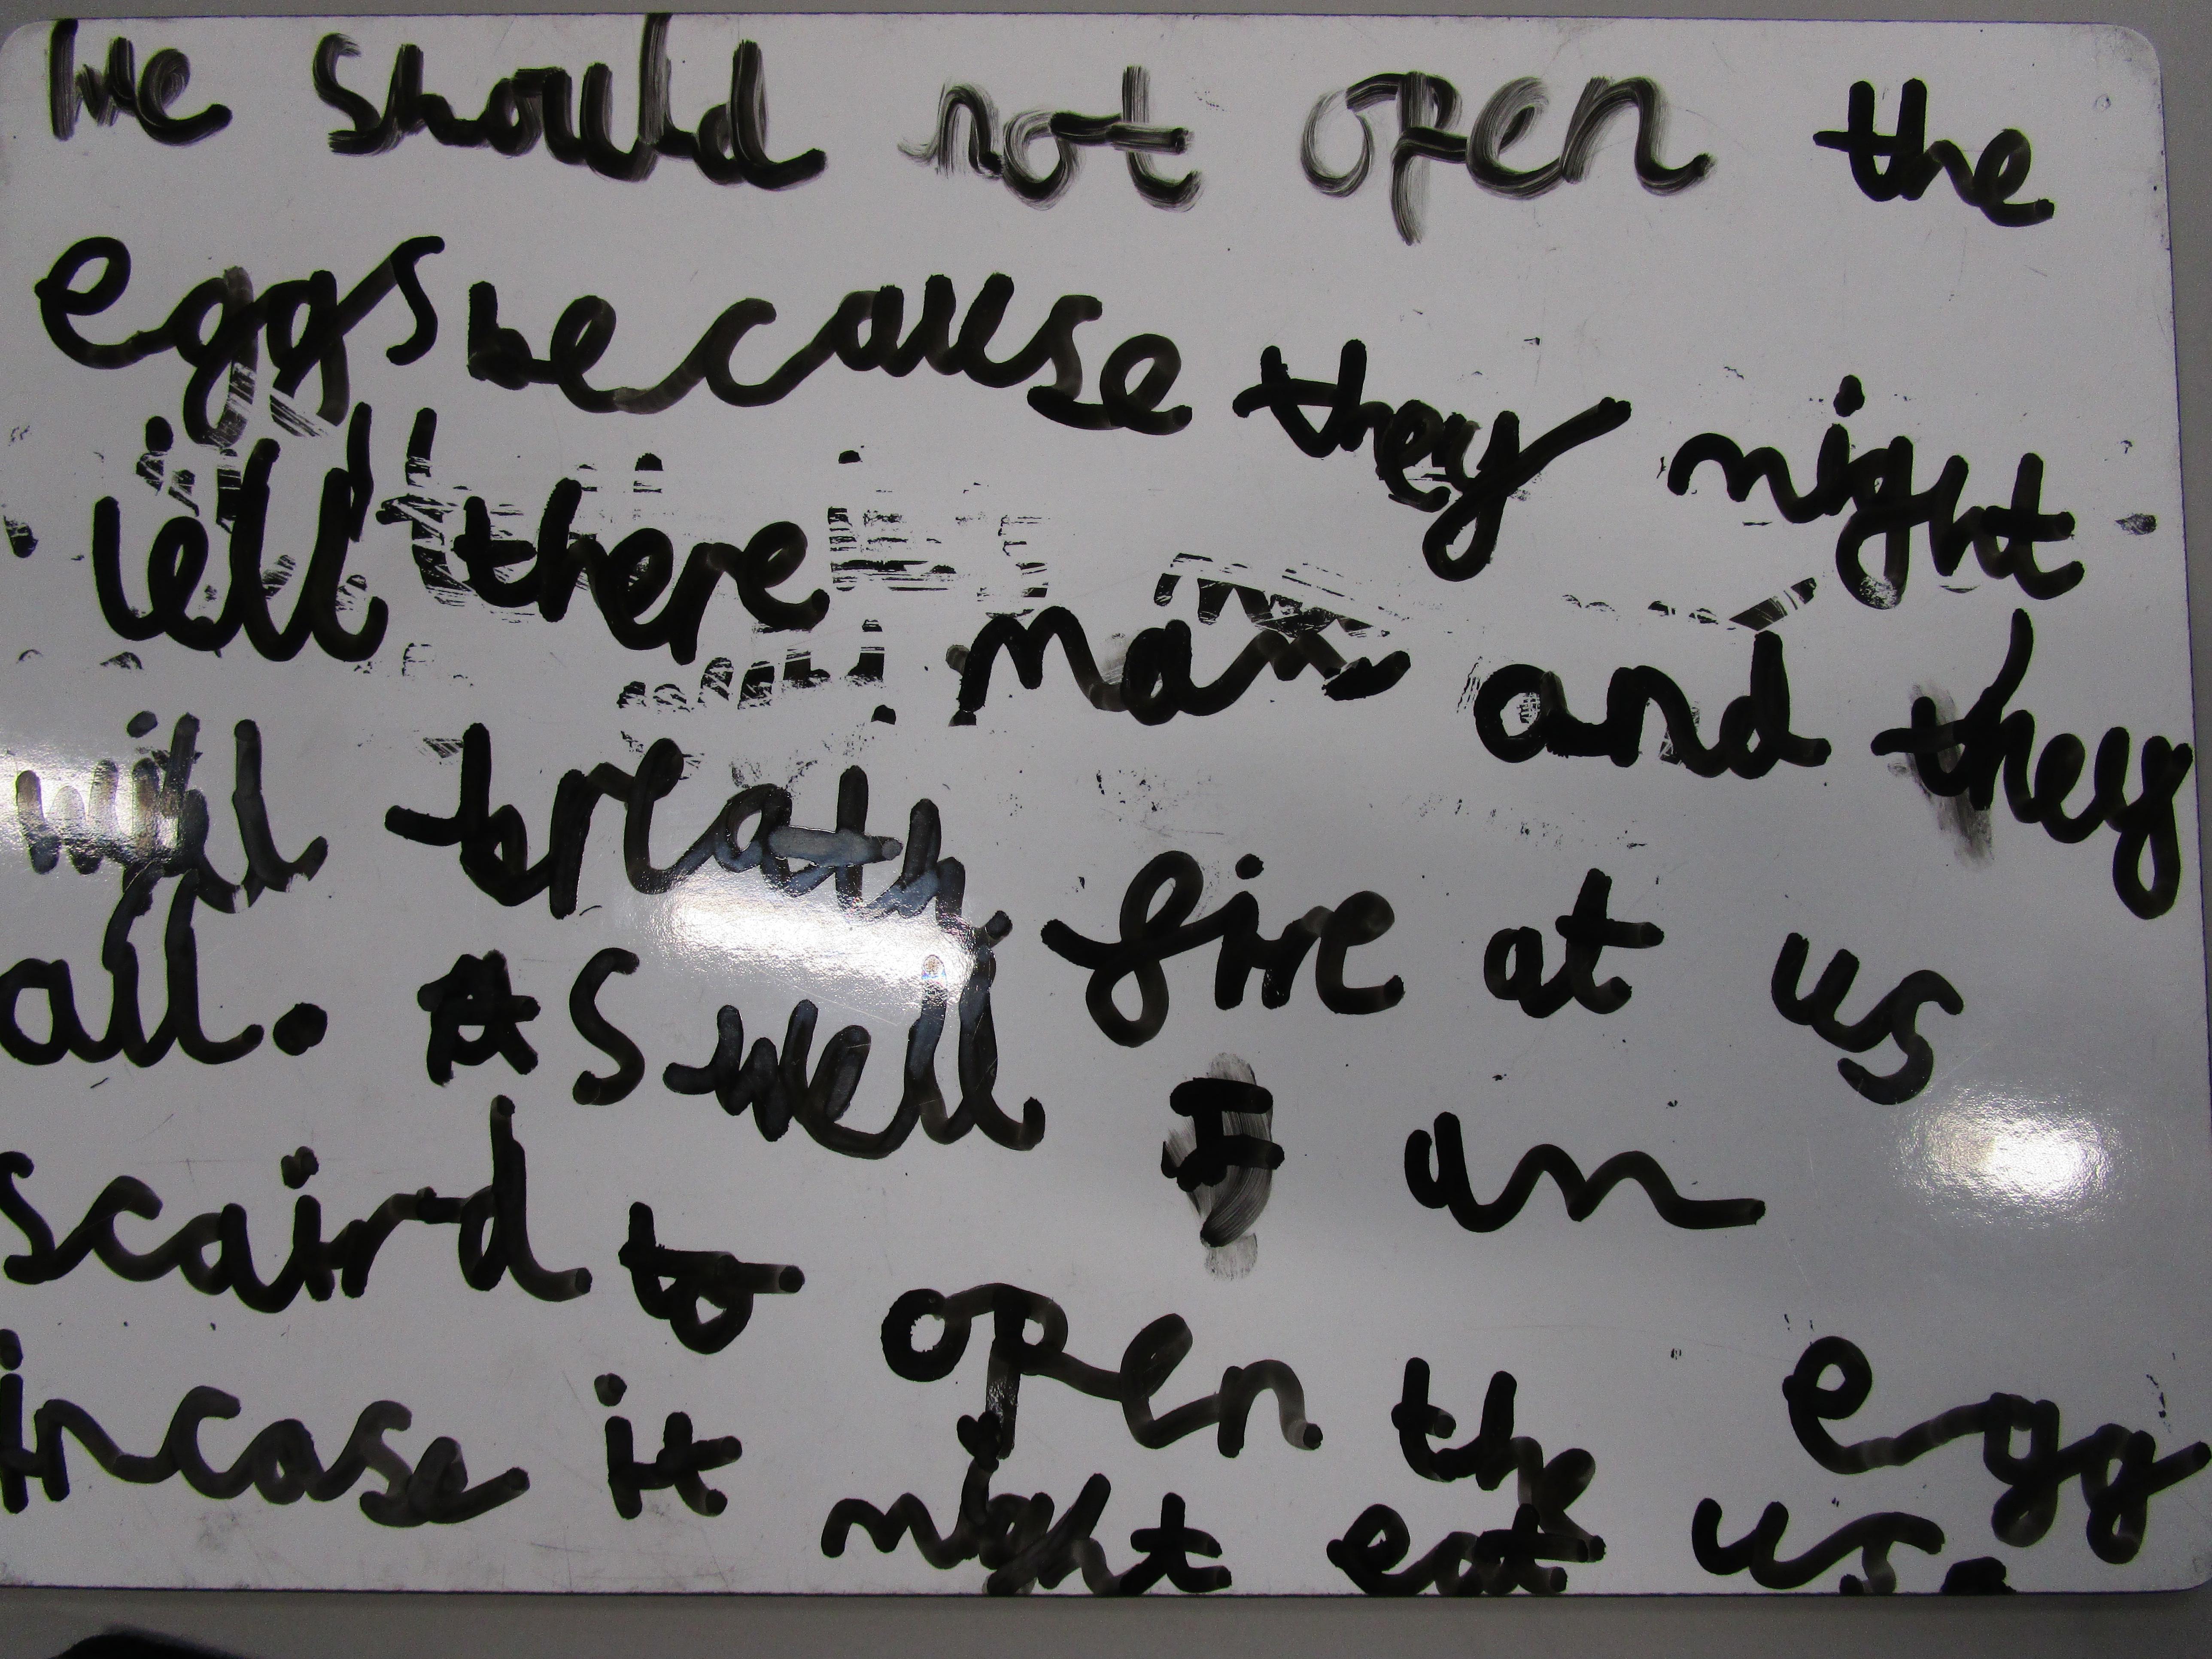 We should not open the
eggs because they might
tell there mam and they
will breath fire at us
all. As well I am
scaird to open the egg
incase it might eat us.